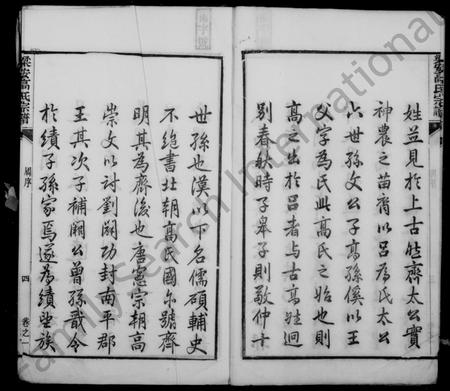 梁安高氏宗譜
姓並見於上古惟齊太公實
神農之苗裔以呂為氏太公
六世孫文公子高孫傒以王
父字為氏此高氏之始也則
高之出於呂者與古高姓迥
別春秋時子皋子則敬仲十
世孫也漢以下名儒碩輔史
不絕書北朝高氏國尓號齊
明其為齊後也唐憲宗朝高
崇文以討劉闢功封南平郡
王其次子補闕公曾孫戩令
於績子孫家焉遂為績望族
梁安高氏宗譜
周序
四
卷之一
FamilySearch International